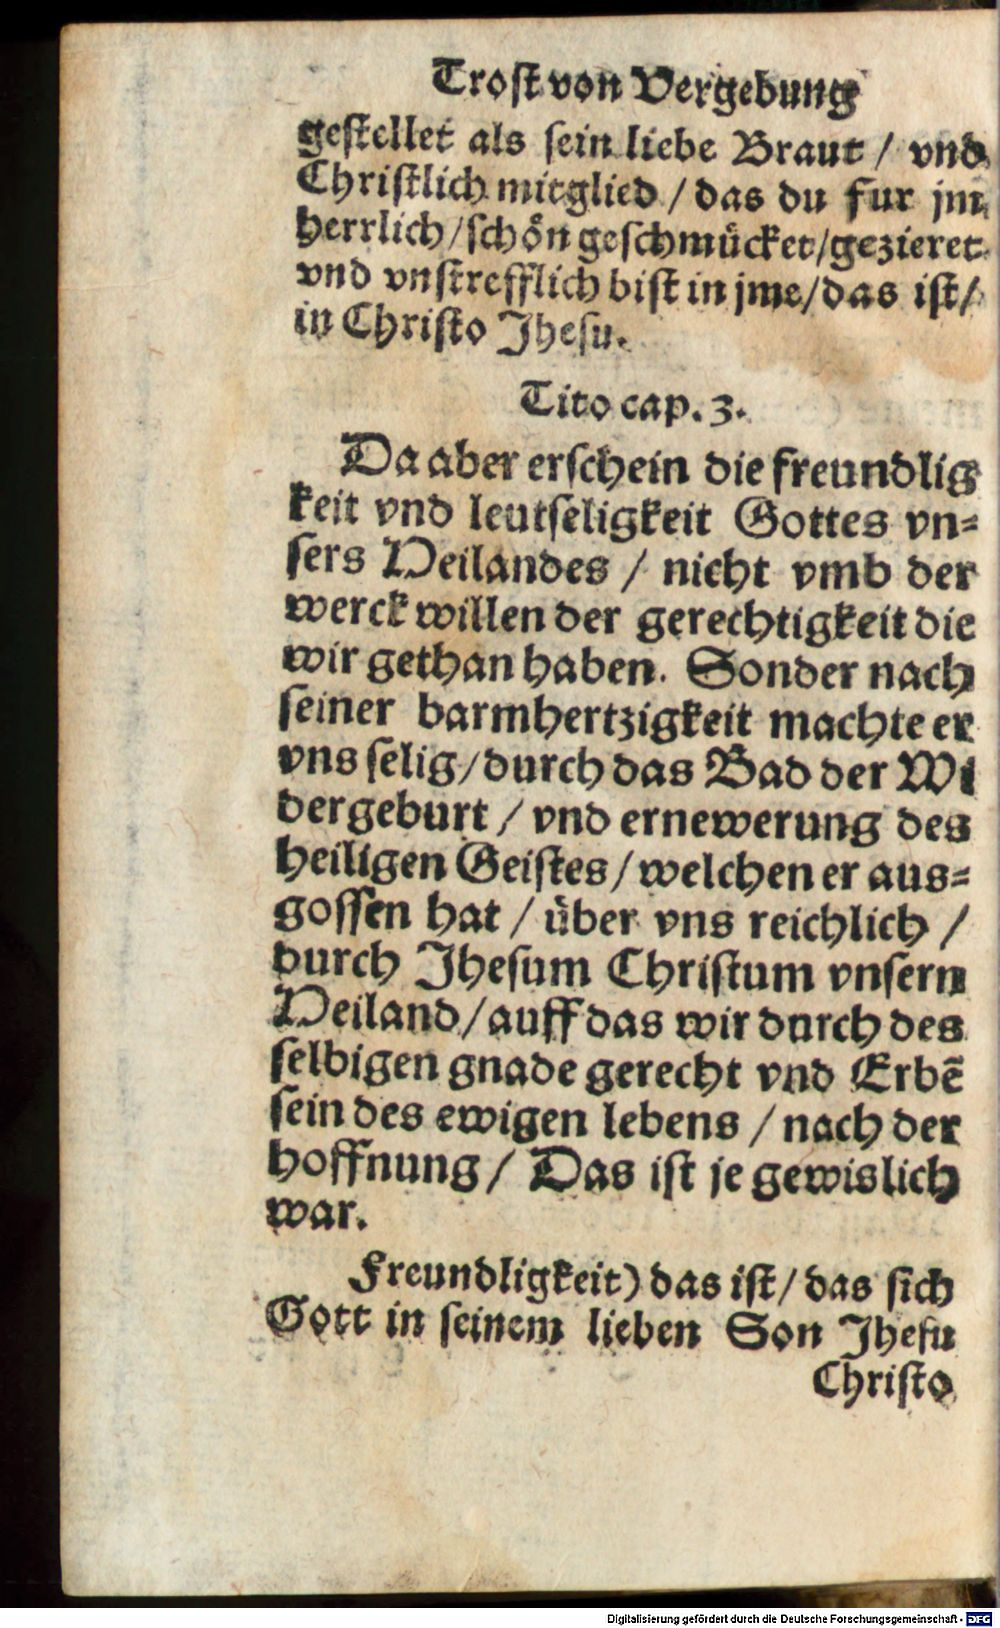 Trost von Vergebung
gestellet als sein liebe Braut / vnd
Christlich mitglied / das du fur jm
herrlich / schön geschmücket / gezieret
vnd vnstrefflich bist in jme / das ist /
in Christo Jhesu.
Tito cap. 3.
Da aber erschein die freundlig
keit vnd leutseligkeit Gottes vn=
sers Heilandes / nicht vmb der
werck willen der gerechtigkeit die
wir gethan haben. Sonder nach
seiner barmhertzigkeit machte er
vns selig / durch das Bad der Wi
dergeburt / vnd ernewerung des
heiligen Geistes / welchen er aus=
gossen hat / über vns reichlich /
durch Jhesum Christum vnsern
Heiland / auff das wir durch des
selbigen gnade gerecht vnd Erbẽ
sein des ewigen lebens / nach der
hoffnung / Das ist je gewislich
war.
Freundligkeit) das ist / das sich
Gott in seinem lieben Son Jhesu
Christo
Digitalisierung gefördert durch die Deutsche Forschungsgemeinschaft - DFG